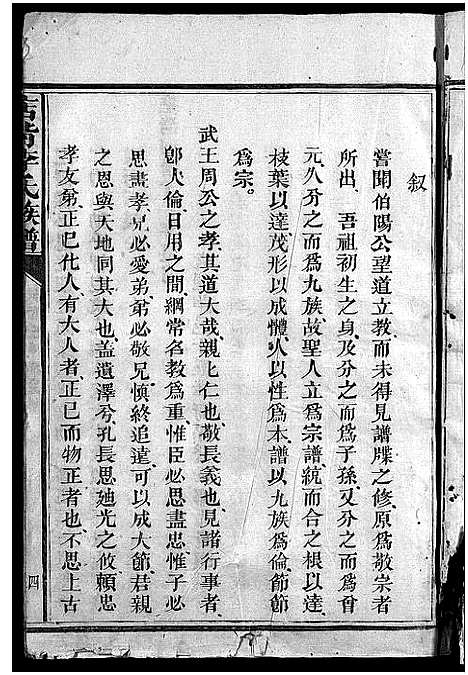 叙
嘗聞伯陽公望道立教而未得見譜牒之修原爲敬宗者
所出吾祖初生之身及分之而爲子孫又分之而爲曾
元久分之而爲九族故聖人立爲宗譜統而合之根以達
枝葉以達茂形以成體人以性爲本譜以九族爲倫節節
爲宗
武王周公之孝其道大哉親親仁也敬長義也見諸行事者
卽人倫日用之間綱常名教爲重惟臣必思盡忠惟子必
思盡孝兄必愛弟弟必敬兄慎終追遠可以成大節君親
之恩與天地同其大也蓋遺澤兮孔長思廸光之攸賴忠
孝友弟正己化人有大人者正己而物正者也不思上古
氏族譜
四